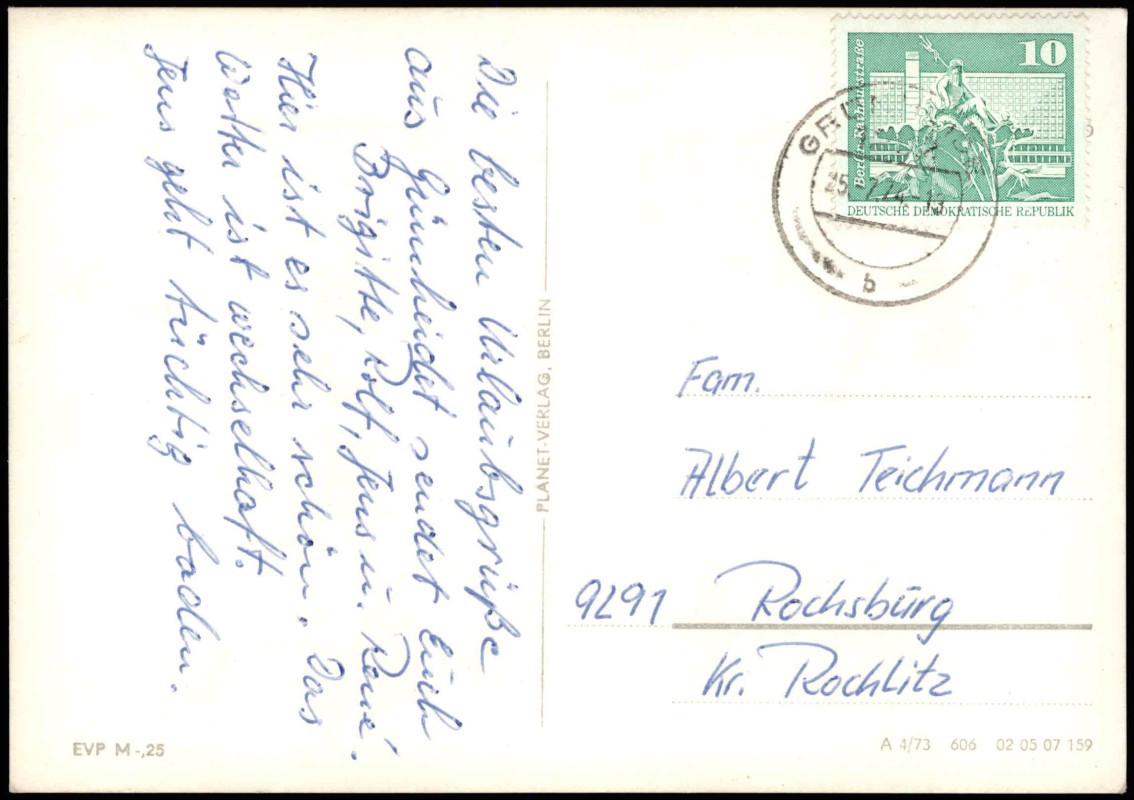 Die besten Urlaubsgrüße
aus Grünheide sendet Euch
Brigitte, Rolf, Jens u. René.
Hier ist es sehr schön. Das
Wetter ist wechselhaft.
Jens geht tüchtig baden.
PLANET-VERLAG, BERLIN
EVP M -,25
10
Berlin-Rathausstraße
DEUTSCHE DEMOKRATISCHE REPUBLIK
b
Fam.
Albert Teichmann
9291 Rochsburg
Kr. Rochlitz
A 4/73 606 02 05 07 159